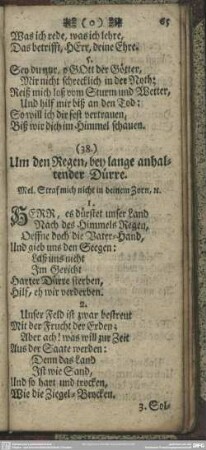 ( o ) 65
Was ich rede, was ich lehre,
Das betrifft, HErr, deine Ehre.
5.
Sey du nur, o GOtt der Götter,
Mir nicht schrecklich in der Noth;
Reiß mich loß vom Sturm und Wetter,
Und hilf mir biß an den Tod:
So will ich dir fest vertrauen,
Biß wir dich im Himmel schauen.
(38.)
Um den Regen, bey lange anhal-
tender Dürre.
Mel. Straf mich nicht in deinem Zorn, ꝛc.
1.
HERR, es dürstet unser Land
Nach des Himmels Regen,
Oeffne doch die Vater-Hand,
Und gieb uns den Seegen:
Laß uns nicht
Im Gericht
Harter Dürre sterben,
Hilf, eh wir verderben.
2.
Unser Feld ist zwar bestreut
Mit der Frucht der Erden;
Aber ach! was will zur Zeit
Aus der Saate werden:
Denn das Land
Ist wie Sand,
Und so hart und trocken,
Wie die Ziegel-Brocken.
3. Sol-